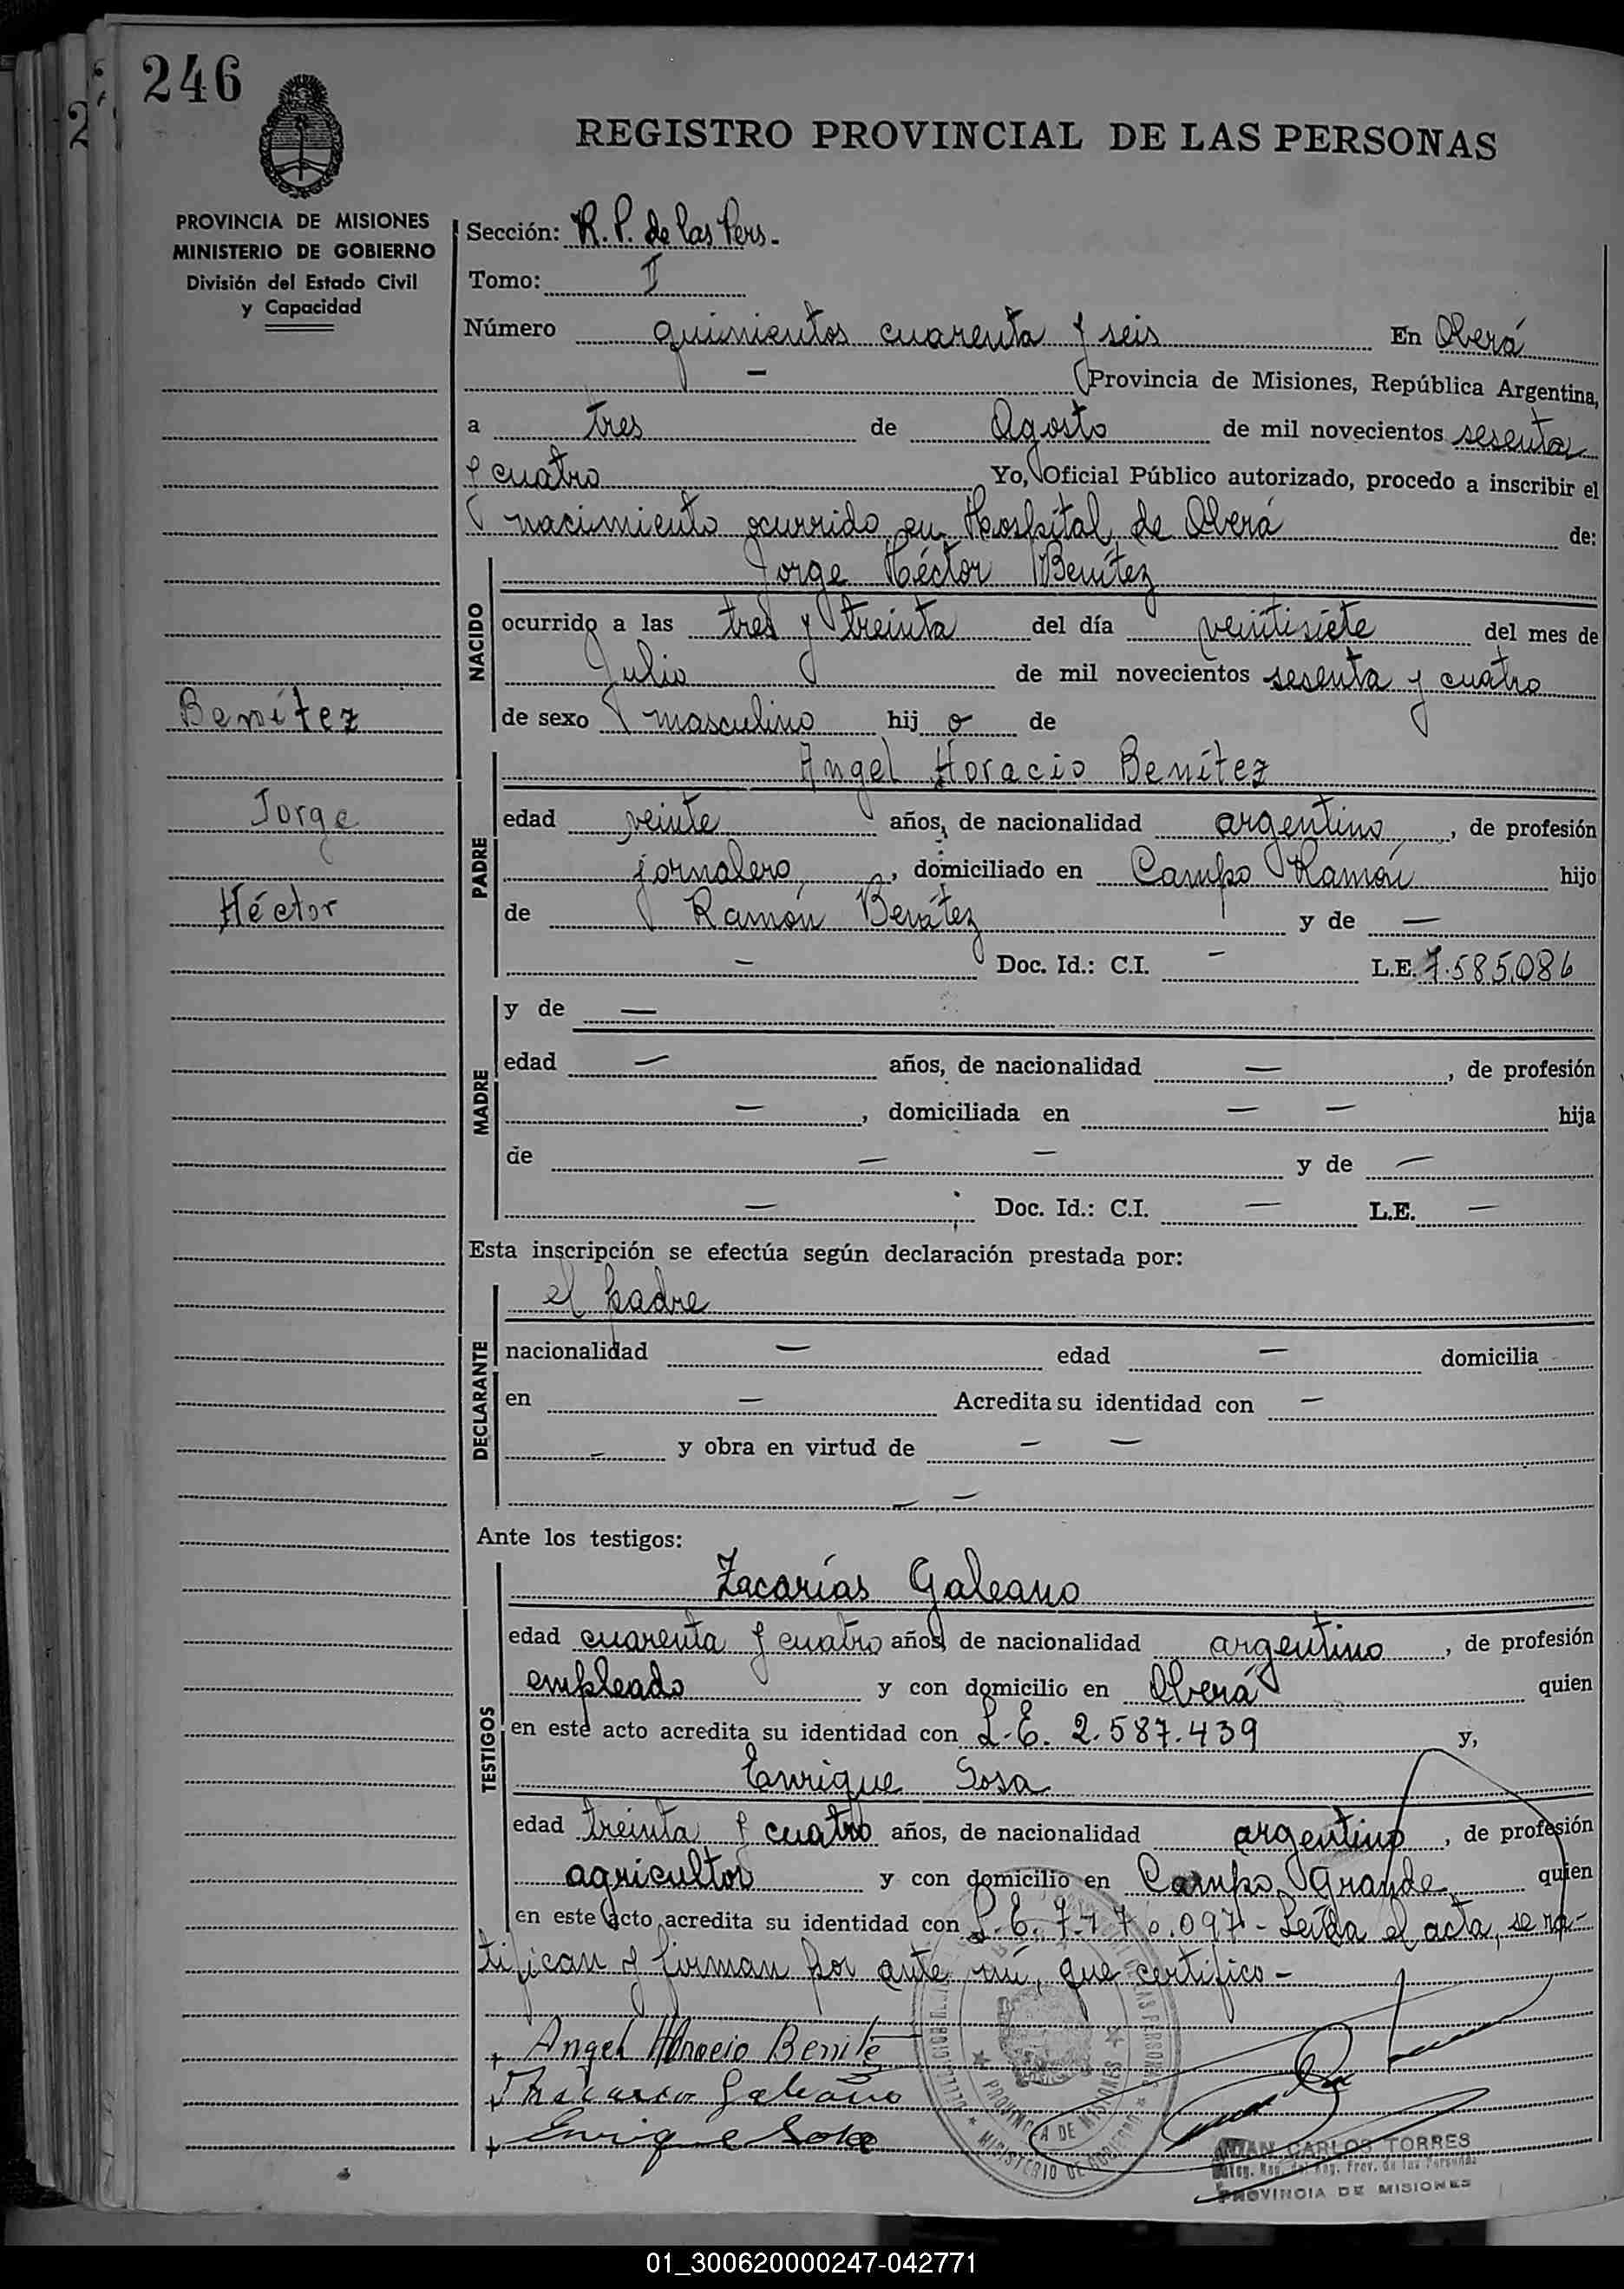 246
REGISTRO PROVINCIAL DE LAS PERSONAS
PROVINCIA DE MISIONES
MINISTERIO DE GOBIERNO
División del Estado Civil
y Capacidad
Sección: R. P. de las Pers.
Tomo: II
Número quinientos cuarenta y seis En Oberá
— Provincia de Misiones, República Argentina,
a tres de Agosto de mil novecientos sesenta
y cuatro Yo, Oficial Público autorizado, procedo a inscribir el
nacimiento ocurrido en Hospital de Oberá de:
NACIDO
Jorge Héctor Benítez
ocurrido a las tres y treinta del día veintisiete del mes de
Julio de mil novecientos sesenta y cuatro
de sexo masculino hijo de
Benítez
Jorge
Héctor
PADRE
Angel Horacio Benítez
edad veinte años, de nacionalidad argentino, de profesión
jornalero, domiciliado en Campo Ramón hijo
de Ramón Benítez y de —
— Doc. Id.: C.I. — L.E. 7.585.086
MADRE
y de —
edad — años, de nacionalidad —, de profesión
—, domiciliada en — — hija
de — — y de —
— Doc. Id.: C.I. — L.E. —
Esta inscripción se efectúa según declaración prestada por:
DECLARANTE
el padre
nacionalidad — edad — domicilia -
en — Acredita su identidad con —
— y obra en virtud de — —
— —
Ante los testigos:
TESTIGOS
Zacarías Galeano
edad cuarenta y cuatro años, de nacionalidad argentino, de profesión
empleado y con domicilio en Oberá quien
en este acto acredita su identidad con L.E. 2.587.439 y,
Enrique Sosa
edad treinta y cuatro años, de nacionalidad argentino, de profesión
agricultor y con domicilio en Campo Grande quien
en este acto acredita su identidad con L.E. - Leída el acta, se ra-
tifican y firman por ante mí, que certifico -
+ Angel Horacio Benitez
+ Galeano
+ Enrique Sosa
PROVINCIA DE MISIONES
MINISTERIO DE GOBIERNO
JUAN CARLOS TORRES
Reg. Prov. de las Personas
PROVINCIA DE MISIONES
01_300620000247-042771